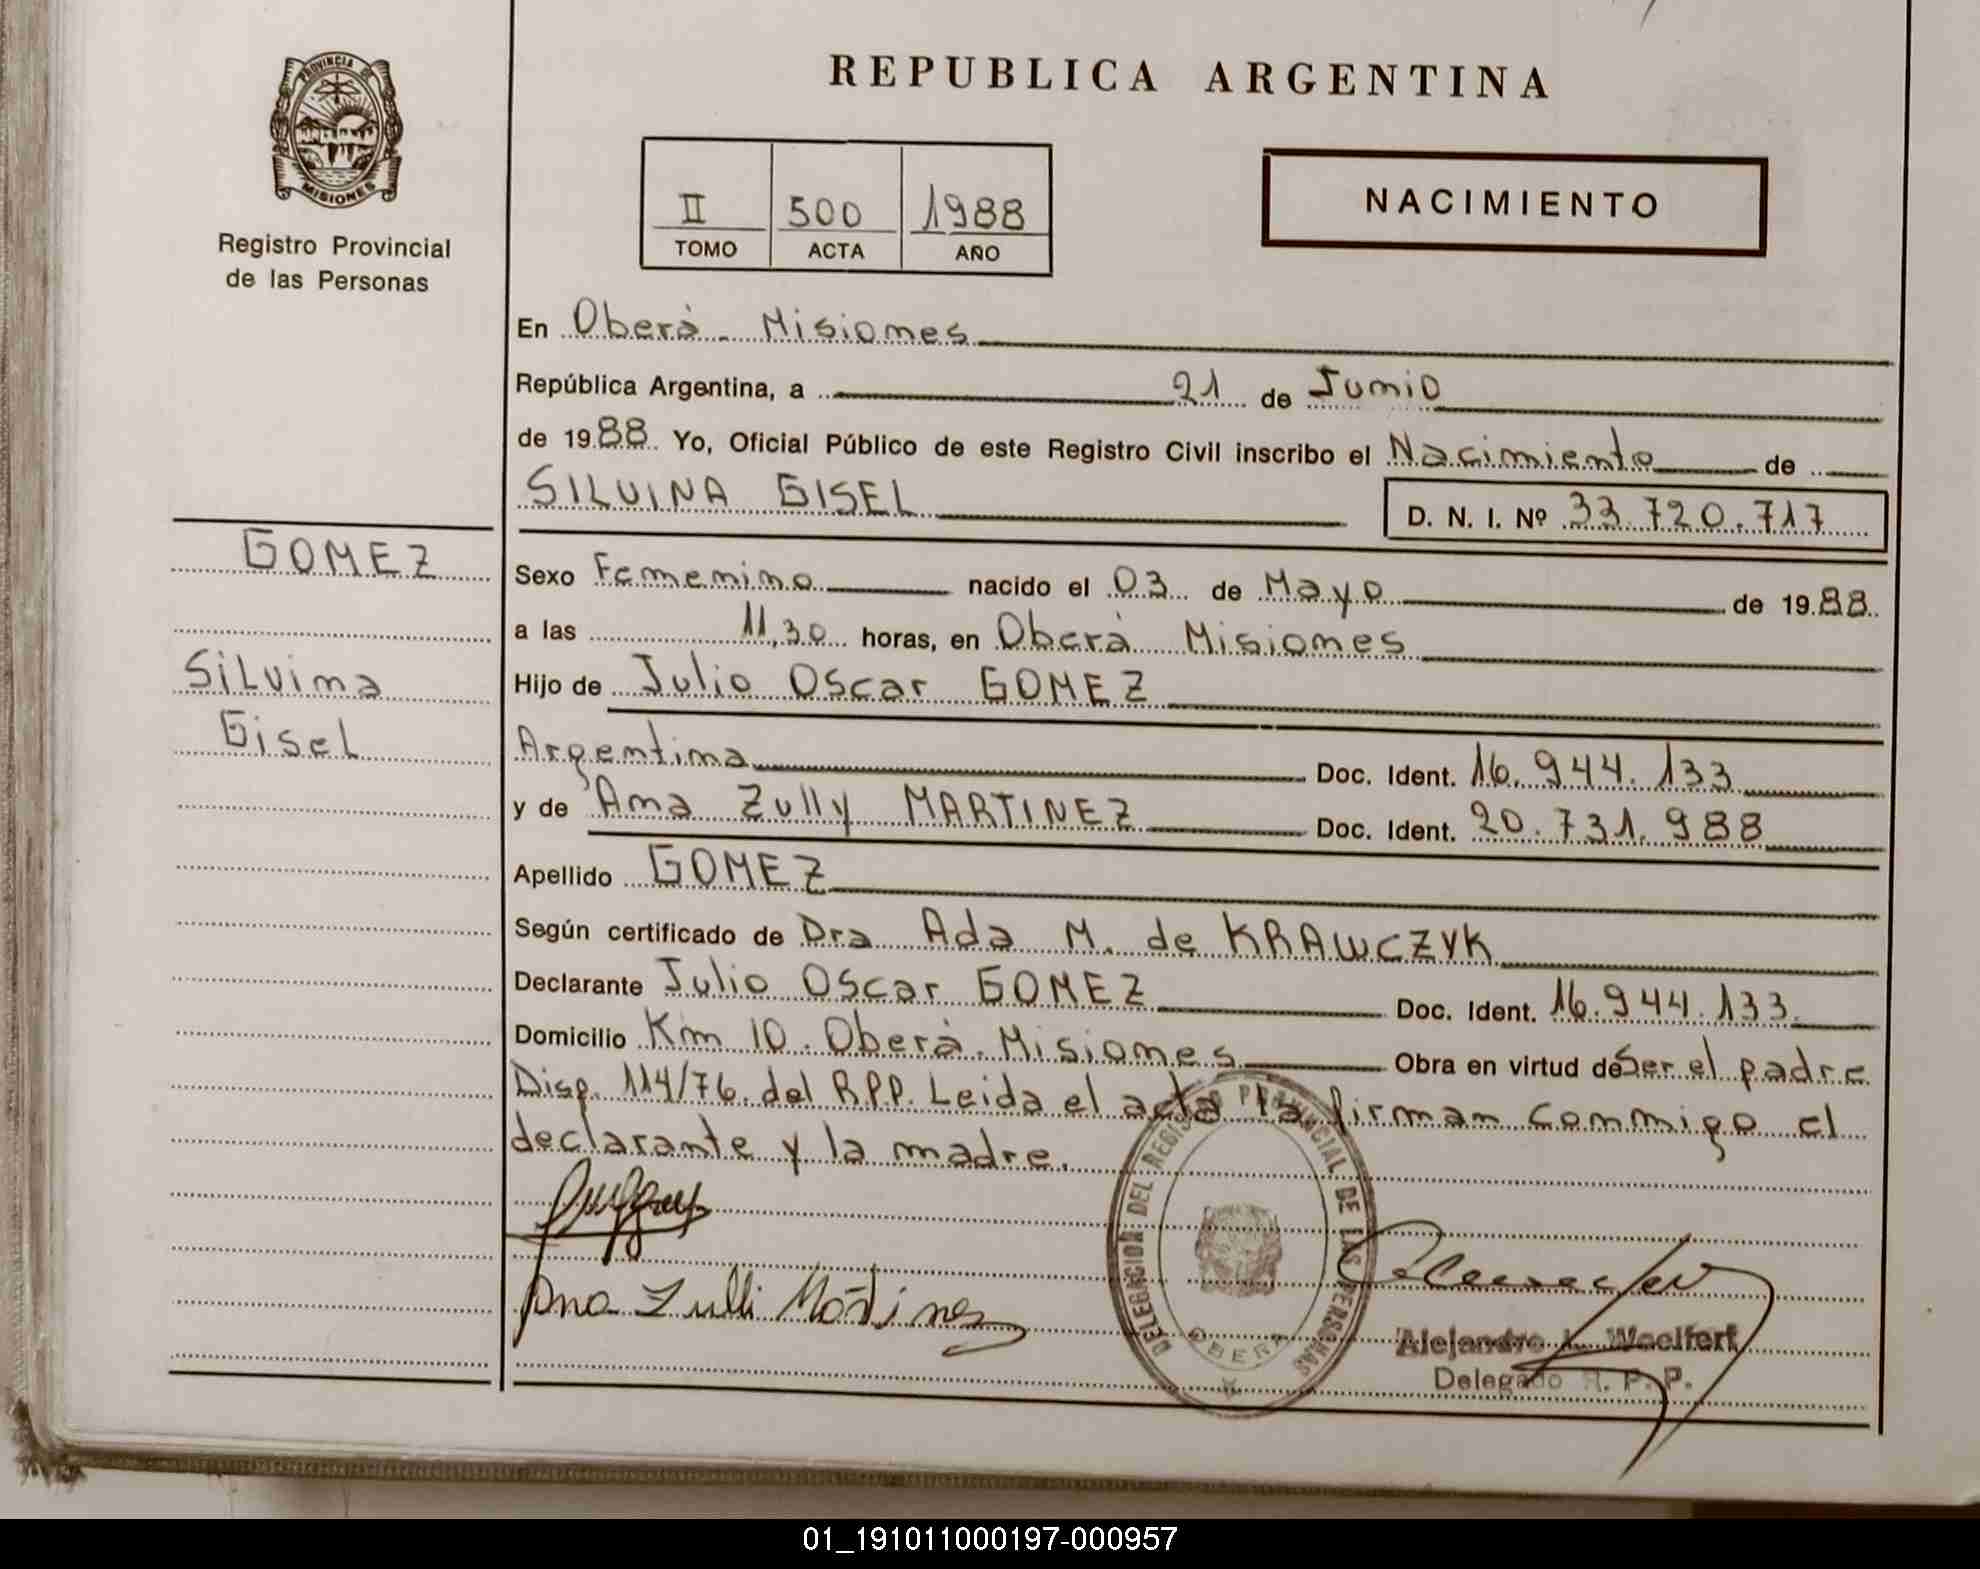 PROVINCIA DE
MISIONES
Registro Provincial
de las Personas
REPUBLICA ARGENTINA
II 500 1988
TOMO ACTA AÑO
NACIMIENTO
En Oberá - Misiones
República Argentina, a 21 de Junio
de 1988 Yo, Oficial Público de este Registro Civil inscribo el Nacimiento de
SILVINA GISEL D. N. I. Nº 33.720.717
GOMEZ
Silvina
Gisel
Sexo Femenino nacido el 03 de Mayo de 1988
a las 11,30 horas, en Oberá Misiones
Hijo de Julio Oscar GOMEZ
Argentina Doc. Ident. 16.944.133
y de Ana Zully MARTINEZ Doc. Ident. 20.731.988
Apellido GOMEZ
Según certificado de Dra Ada M. de KRAWCZYK
Declarante Julio Oscar GOMEZ Doc. Ident. 16.944.133
Domicilio Km 10. Oberá. Misiones Obra en virtud de Ser el padre
Disp. 114/76. del R.P.P. Leida el acta la firman conmigo el
declarante y la madre.
Ana Zulli Martinez
DELEGACION DEL REGISTRO PROVINCIAL DE LAS PERSONAS
OBERA
Alejandro L. Woelfert
Delegado R. P. P.
01_191011000197-000957